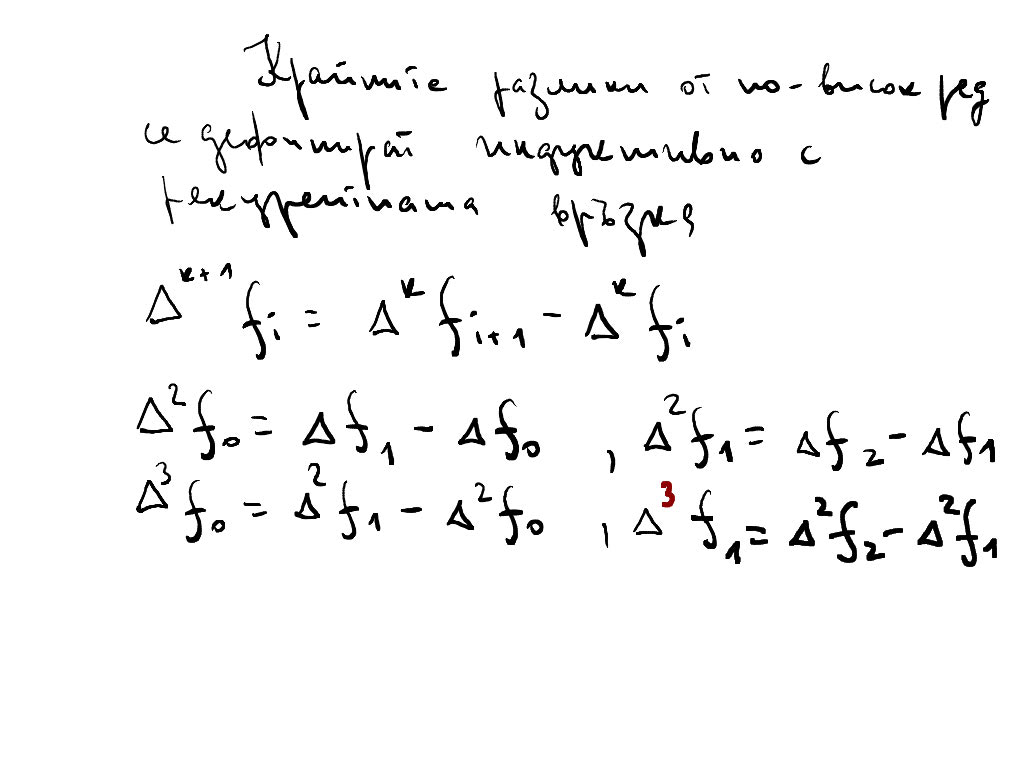 Крайните разлики от по-висок ред
се дефинират индуктивно с
рекурентната връзка
Δᵏ⁺¹ fᵢ = Δᵏ fᵢ₊₁ - Δᵏ fᵢ
Δ² f₀ = Δf₁ - Δf₀ , Δ² f₁ = Δf₂ - Δf₁
Δ³ f₀ = Δ² f₁ - Δ² f₀ , Δ³ f₁ = Δ² f₂ - Δ² f₁